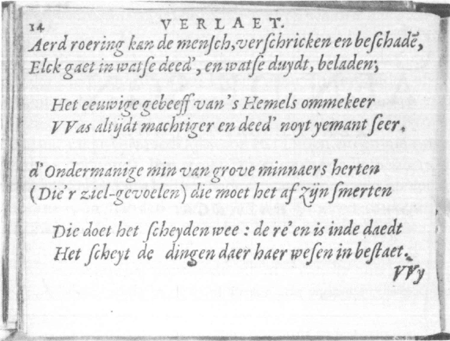 14 VERLAET.
Aerd roering kan de mensch, verschricken en beschadẽ,
Elck gaet in watse deed', en watse duydt, beladen;
Het eeuwige gebeeff van 's Hemels ommekeer
VVas altijdt machtiger en deed' noyt yemant seer.
d'Ondermanige min van grove minnaers herten
(Die'r ziel-gevoelen) die moet het af zijn smerten
Die doet het scheyden wee: de re'en is inde daedt
Het scheyt de dingen daer haer wesen in bestaet.
VVy